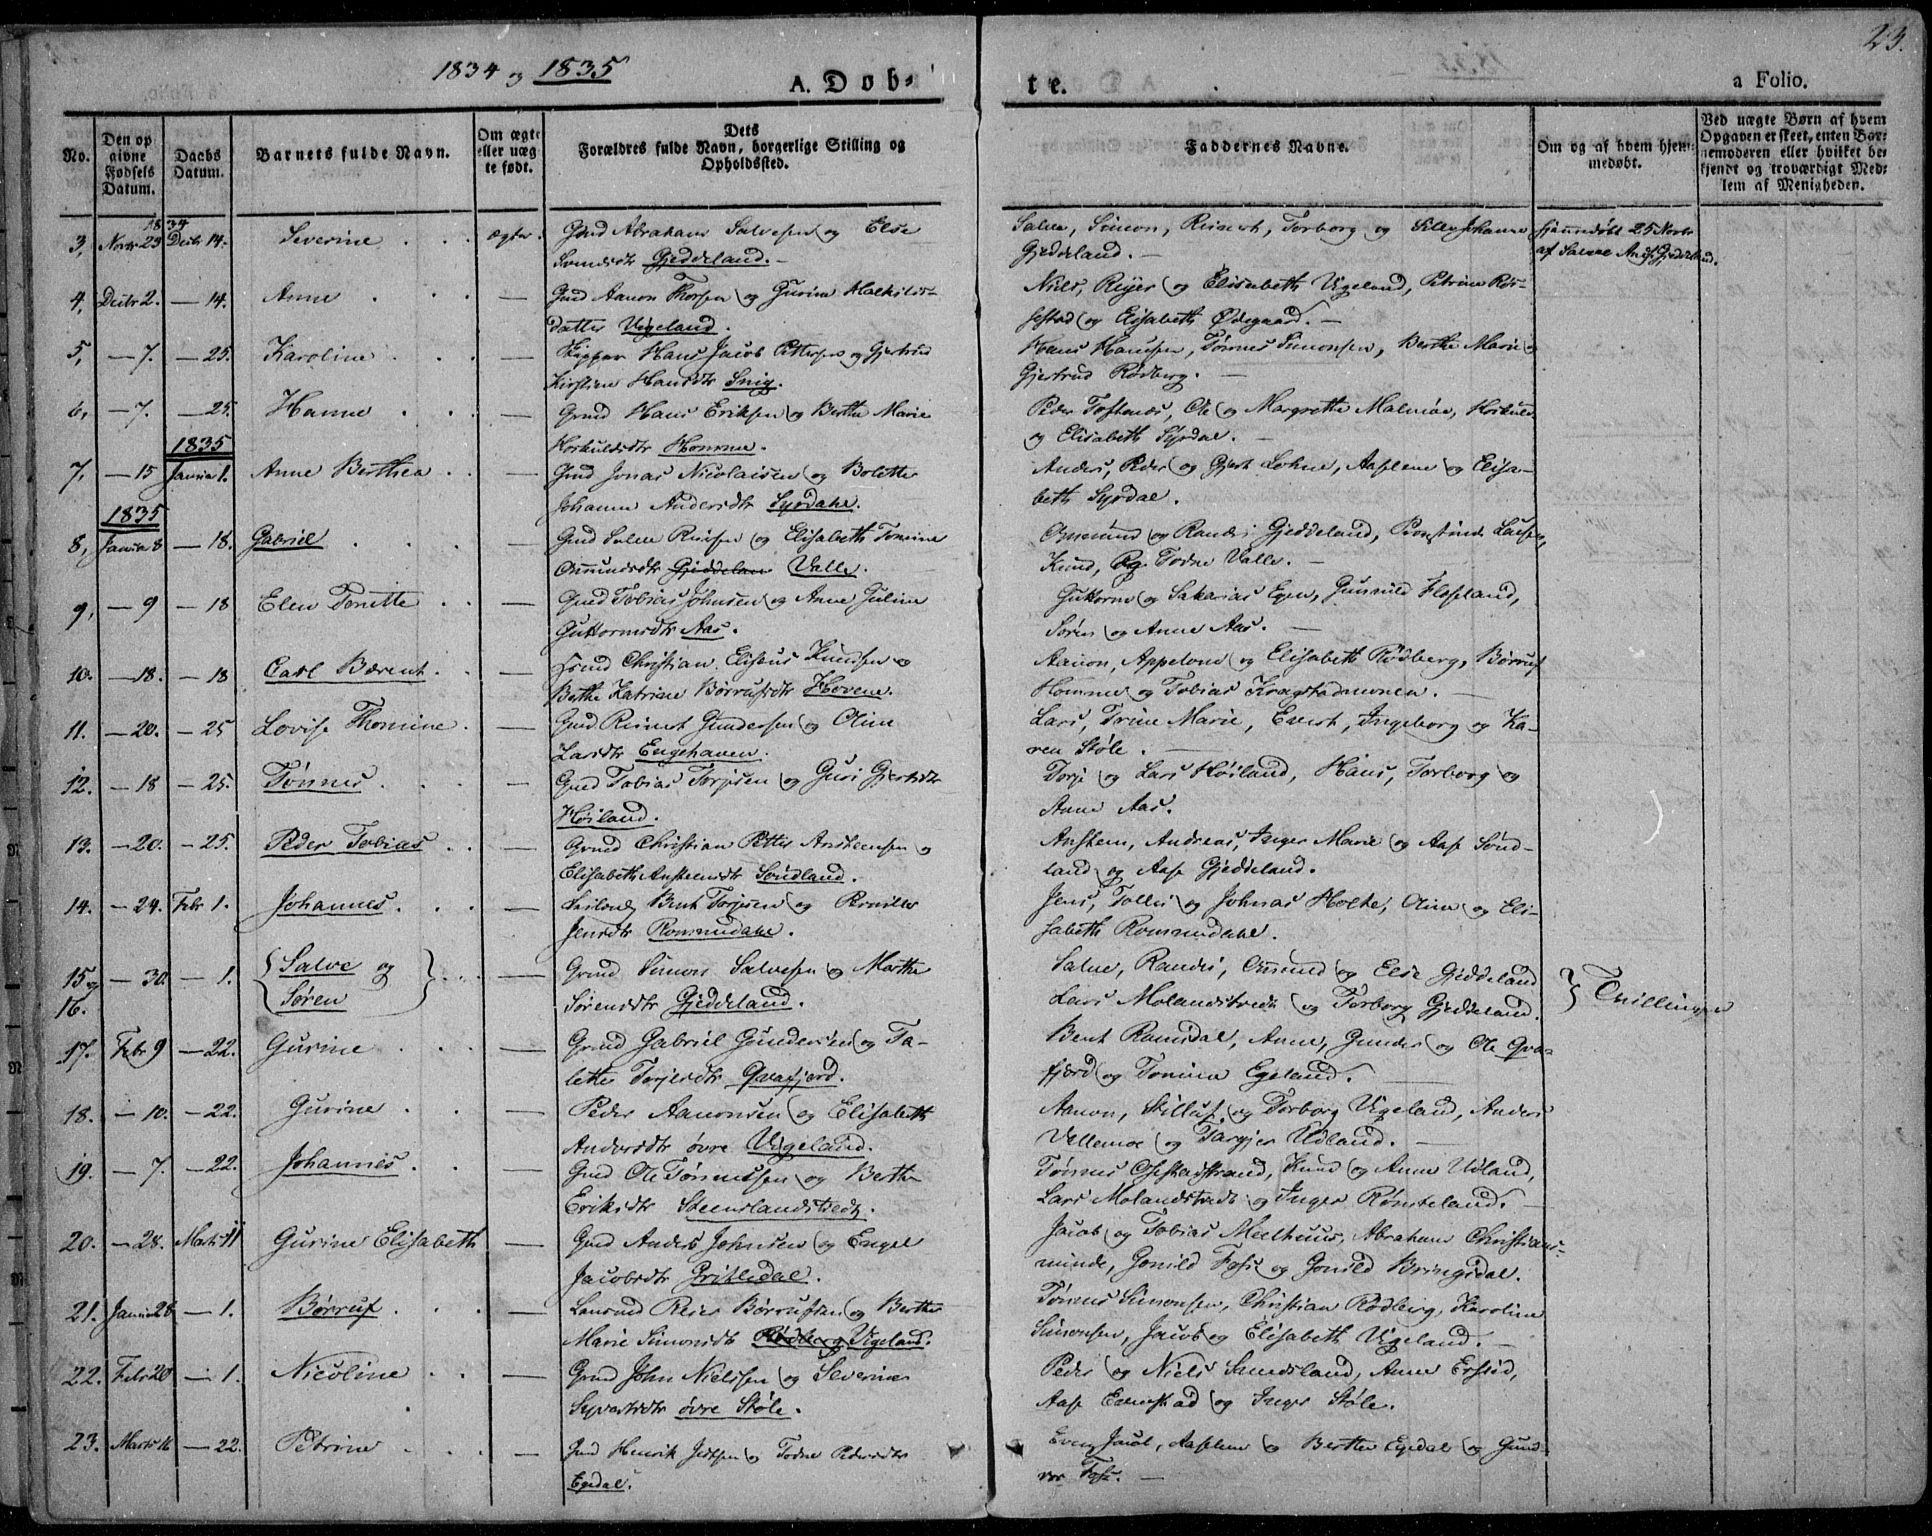 23.
1834 og 1835
A. Døb-
te.
a Folio.
No.
Den op
givne
Fødsels
Datum.
Daabs
Datum.
Barnets fulde Navn.
Om ægte
eller uæg
te født.
Dets
Forældres fulde Navn, borgerlige Stilling og
Opholdssted.
Faddernes Navne.
Om og af hvem hjem-
medøbt.
Ved uægte Børn af hvem
Opgaven er skeet, enten Bar-
nemoderen eller hvilket be-
kjendt og troværdigt Med-
lem af Menigheden.
1834
3, Novbr 23 Decbr 14. Severine ægte. Gmd Abraham Salvesen og Else
Svendsdtr Gjeddeland.
Salve, Simon, Reinert, Torborg og Sille Johanne
Gjeddeland.
hjemmedøbt 25 Novbr
af Salve Gjeddeland.
4, Decbr 2. — 14. Anne — Gmd Aanon Thorsen og Gurine
datter Vigeland.
Niels, Reijer og Elisabeth Vigeland, Petrine Rø-
sestad og Elisabeth Ødegaard.
5, — 7. — 25. Karoline — Skipper Hans Jacob Pettersen og Gjertrud
Kirstine Hansdtr Snig.
Hans Hansen, Tønnes Simonsen, Berthe Marie
Gjertrud Rødberg.
6, — 7. — 25. Hanne — Grmd Hans Eriksen og Berthe Marie
Horkuldsdtr Homme.
Peder Tofteneds, Ole og Margrethe Malmøe,
og Elisabeth Syrdal.
1835
7, — 15 Janua 1. Anne Berthea — Gmd Jonas Nicolaisen og Bolette
Johanne Andersdtr Syrdahl.
Anders, Peder og Gjert Lohne, Aaselene og Elisa-
beth Syrdal.
1835
8, Janua 8 — 18. Gabriel — Gmd Salve Reiersen og Elisabeth Tomine
Omundsdtr Gjeddelan Valle.
Omund og Randi Gjeddeland,
Knud, og Todne Valle.
9, — 9 — 18 Elen Tonette — Gmd Tobias Johnsen og Anne Juline
Guttormsdtr Aas.
Guttorm og Sakarias Egen, Gunnild Floseland,
Søren og Anne Aas.
10. — 18. — 18 Carl Bærent — Grmd Christian Eliseus Knudsen og
Berthe Katrine Børrufsdtr Hovene.
Aanon, Appelone og Elisabeth Rødberg, Børruf
Homme og Tobias Krogstadmonen.
11. — 20. — 25 Lovise Thomine — Gmd Reinert Gundersen og Oline
Larsdtr Engehaven.
Lars, Trine Marie, Evert, Ingeborg og Ka-
ren Støle.
12. — 18 — 25. Tønnes — Gmd Tobias Torjesen og Guri Gjertsdtr
Høiland.
Torje og Lars Høiland, Hans, Torborg og
Anne Aas.
13. — 20. — 25. Peder Tobias — Grmd Christian Petter Ansteensen og
Elisabeth Ansteensdtr Søndland.
Anstein, Andreas, Inger Marie og Aase Sønd-
land og Aase Gjeddeland.
14. — 24. Febr 1. Johannes — Bent Torjesen og Pernille
Jensdtr Rommendahl.
Jens, Tolles og Johnas Holte, Oline og Eli-
sabeth Rommendahl.
15 og
16. — 30. — 1. Salve og
Søren — Grmd Simon Salvesen og Marthe
Sørensdtr Gjeddeland.
Salve, Randi, Omund og Else Gjeddeland
Lars Molandstredt og Torborg Gjeddeland.
Tvillinger
17. Febr 9 — 22. Gurine — Grmd Gabriel Gundersen og Ta-
lette Torjersdtr Qvafjord.
Bent Romsdal, Anne, Gunder og Ole Qva-
fjord og Tomine Egeland.
18. — 10. — 22. Gurine — Peder Aanonsen og Elisabeth
Andersdtr øvre Vigeland.
Aanon, Stilluf og Torborg Vigeland, Anders
Vellemoe og Targjer Udland.
19. — 7. — 22. Johannes — Gmd Ole Tønnessen og Berthe
Eriksdtr Steenslandstredt.
Tønnes Osestadstrand, Knud og Anne Udland,
Lars Molandstredt og Inger Rømteland.
20. — 28. Marts 1 Gurine Elisabeth — Gmd Anders Johnsen og Engel
Jacobsdtr Quisledal.
Jacob og Tobias Meelhuus, Abraham Christians-
minde, Gonild Foss og Gonild Bringsdal.
21. Janua 28 — 1. Børruf — Lensmd Reier Børrufsen og Berthe
Marie Simonsdtr Rødberg Vigeland.
Tønnes Simonsen, Christian Rødberg, Karoline
Simonsen, Jacob og Elisabeth Vigeland.
22. Febr 20 — 1. Nicoline — Grmd John Nielssen og Severine
Syvertsdtr øvre Støle.
Peder og Niels Sundsland, Anne Ersiød,
Aase Evenstad og Inger Støle.
23. Marts 16 — 22. Petrine — Gmd Henrik Jepsen og Todne Pedersdtr
Egedal.
Even Jacob, Aaselene og Berthe Egedal og Gund-
vor Foss.